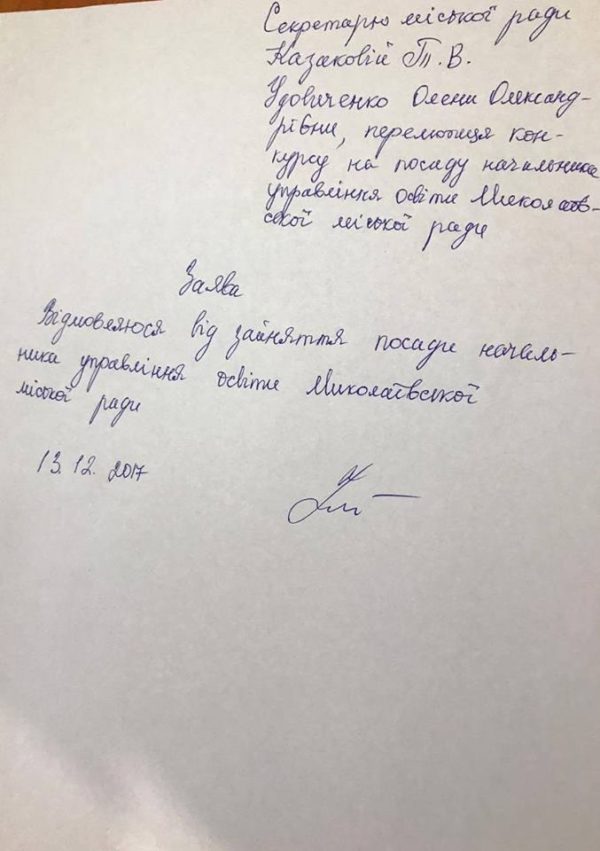 Секретарю міської ради
Казаковій Т.В.
Удовиченко Олени Олександ-
рівни, переможця кон-
курсу на посаду начальника
управління освіти Миколаїв-
ської міської ради
Заява
Відмовляюся від зайняття посади началь-
ника управління освіти Миколаївської
міської ради
13.12.2017